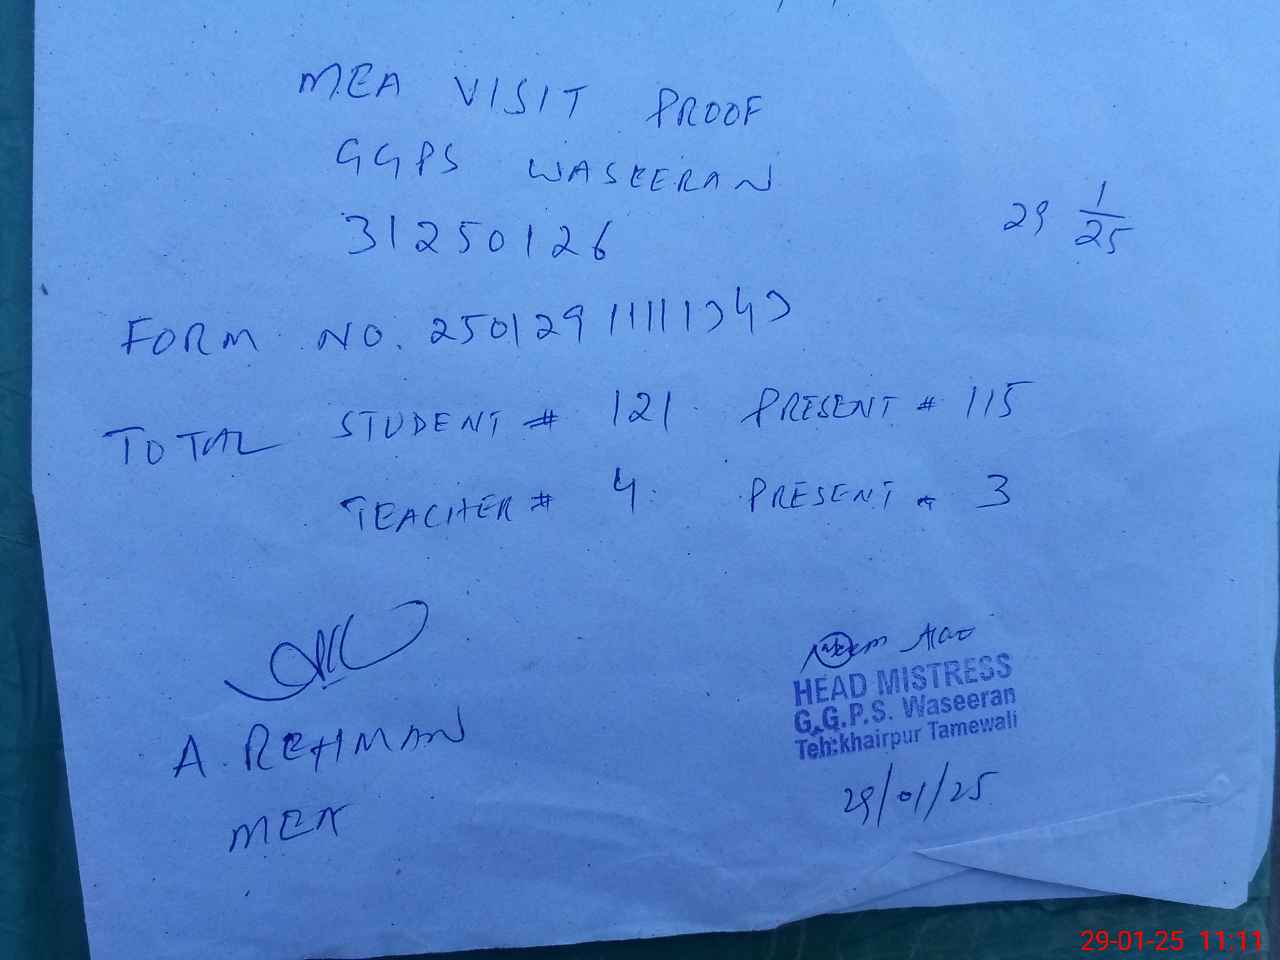 MEA VISIT PROOF
GGPS WASEERAN
31250126
29 1/25
FORM NO. 25012911111343
TOTAL STUDENT # 121 PRESENT # 115
TEACHER # 4 PRESENT # 3
A. REHMAN
MEA
HEAD MISTRESS
G.G.P.S. Waseeran
Teh:khairpur Tamewali
29/01/25
29-01-25 11:11